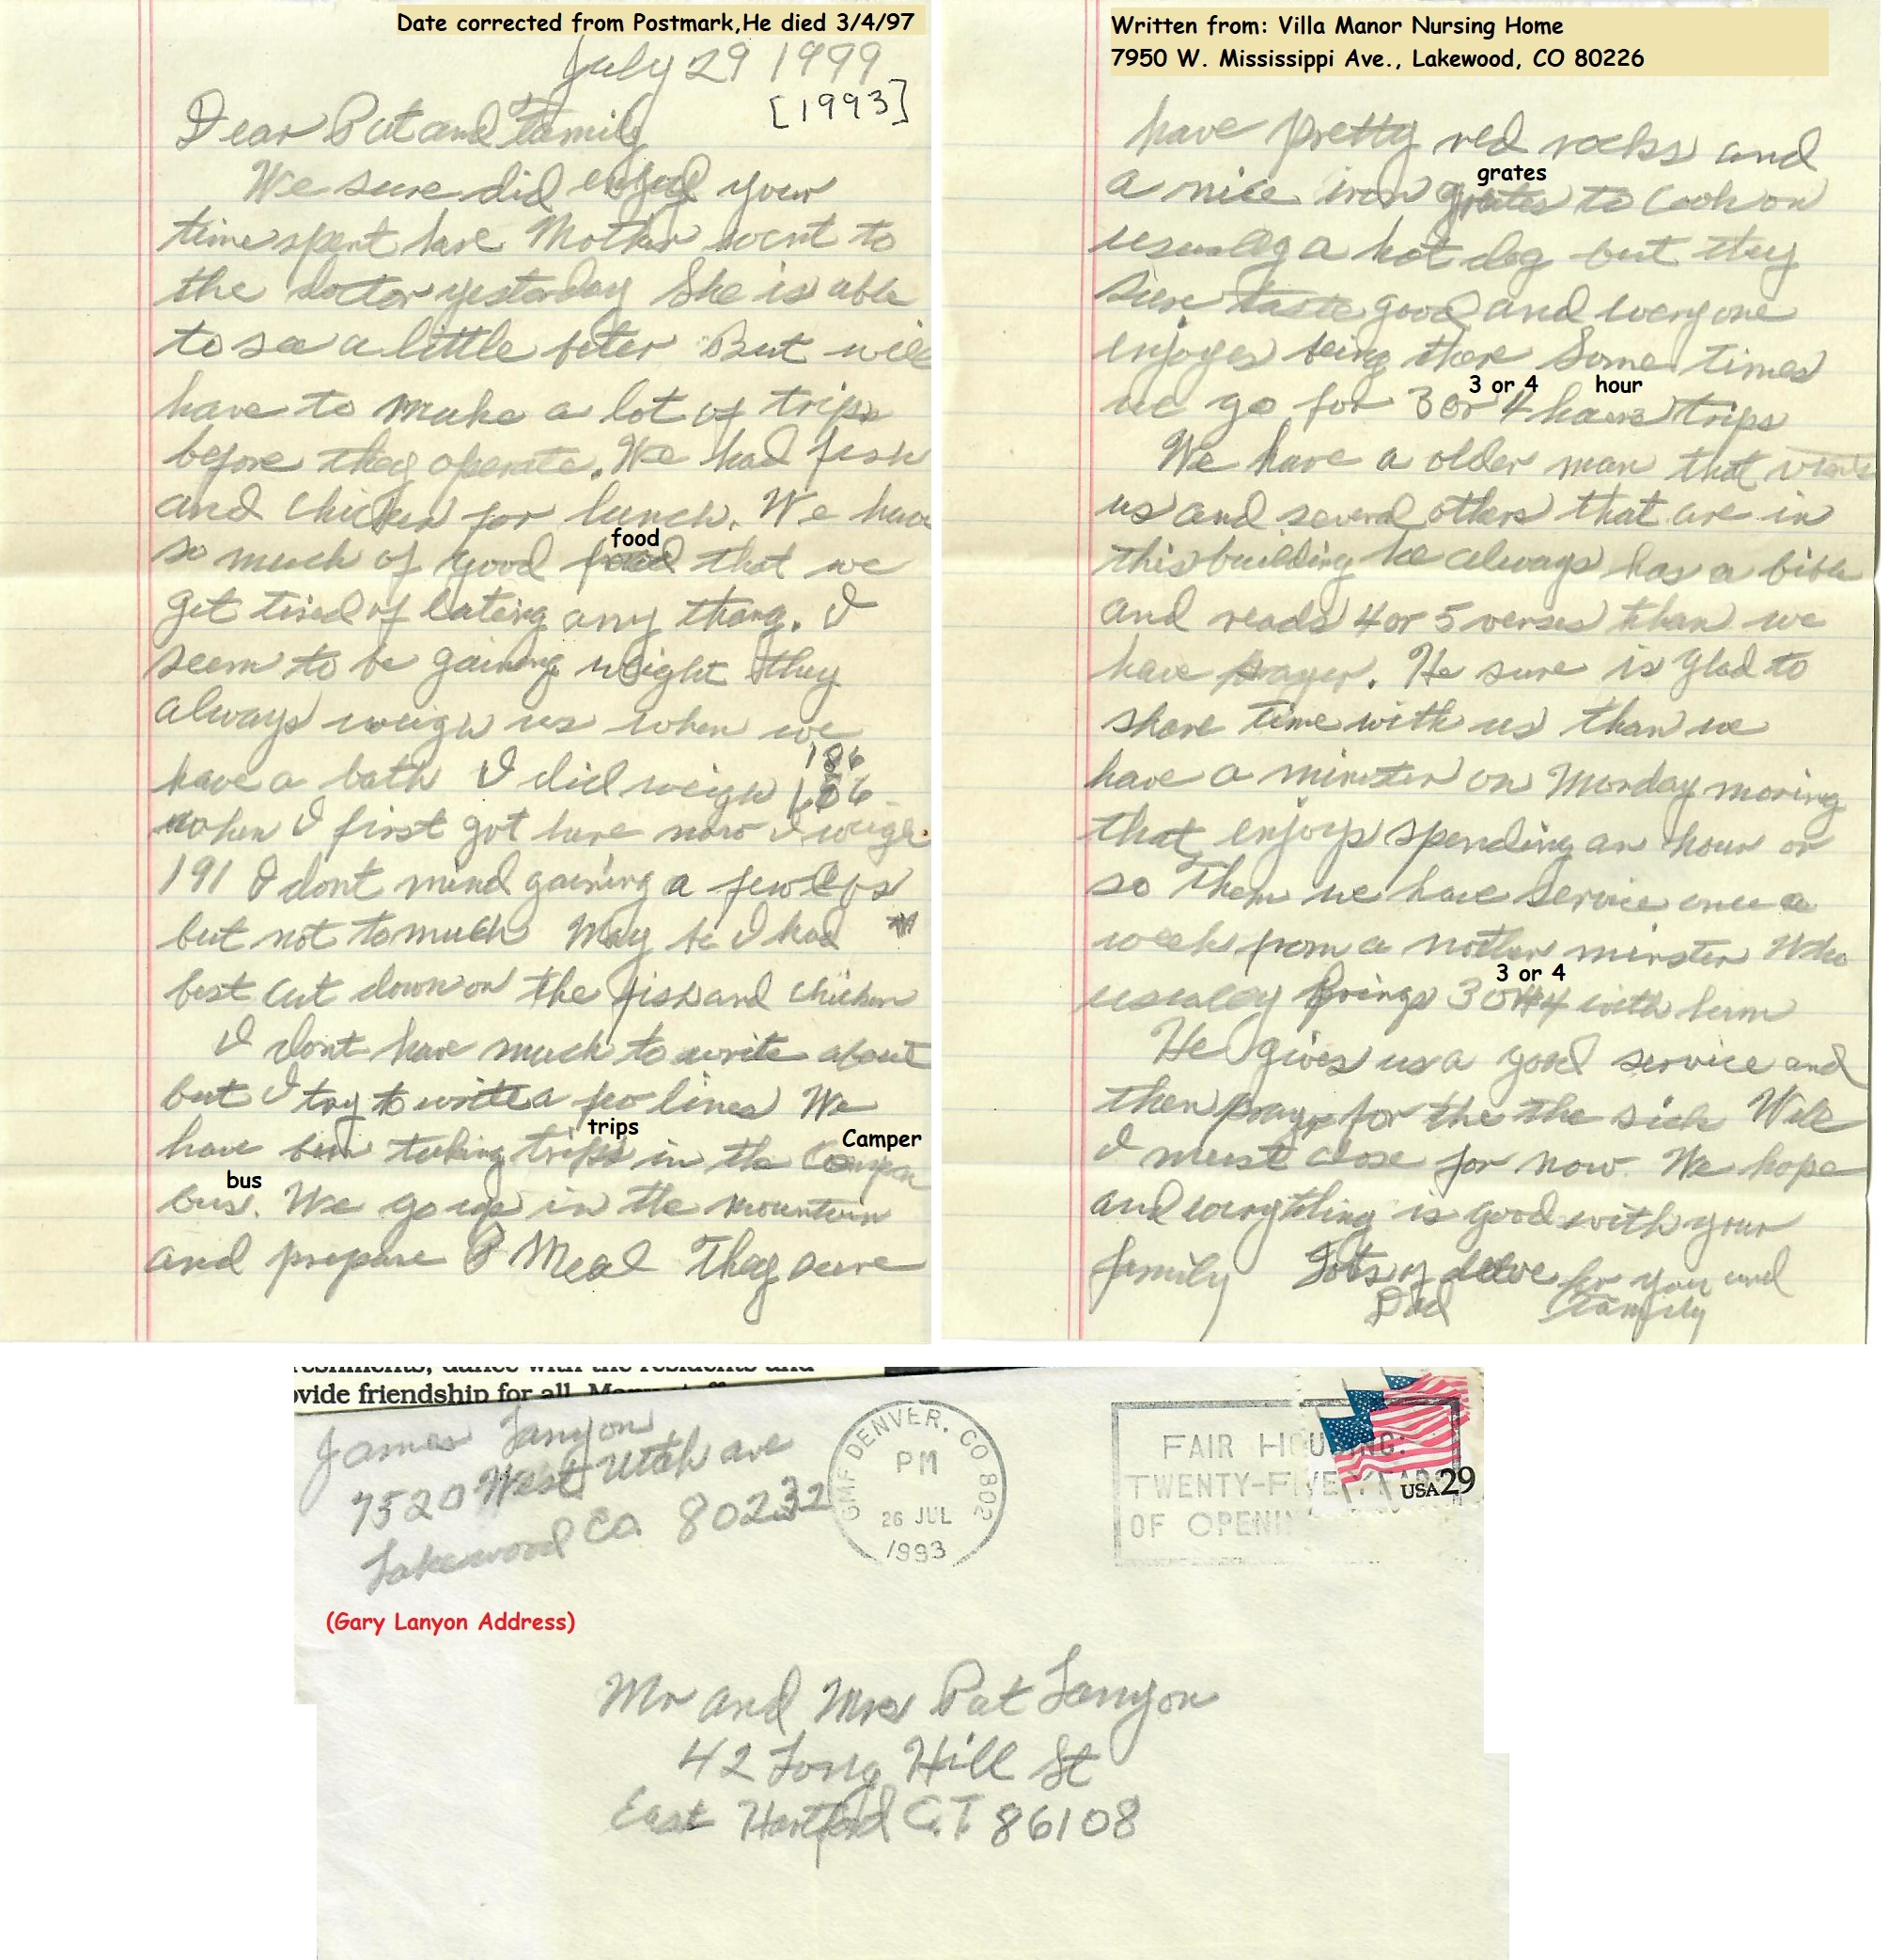 Date corrected from Postmark,He died 3/4/97
July 29 1999
[1993]
Dear Pat and Family
We sure did enjoy your
time spent here Mother went to
the doctor yesterday She is able
to see a little beter But will
have to make a lot of trips
before they operate. We had fish
and chicken for lunch. We have
food
so much of good food that we
get tired of eating any thang. I
seem to be gaining weight they
always weigh us when we
186
have a bath I did weigh 186
when I first got here now I weigh
191 I dont mind gaining a few lbs
but not to much May be I had
best cut down on the fish and chicken
I dont have much to write about
but I try to write a few lines We
trips Camper
have been taking trips in the Camper
bus
bus. We go up in the mountain
and prepare a Meal They sure
Written from: Villa Manor Nursing Home
7950 W. Mississippi Ave., Lakewood, CO 80226
have pretty red rocks and
grates
a nice iron grates to Cook on
usually a hot dog but they
sure taste good and everyone
enjoyes being there Some times
3 or 4 hour
we go for 3 or 4 hours trips
We have a older man that visits
us and several others that are in
this building he always has a bible
and reads 4 or 5 verses than we
have prayer. He sure is glad to
share time with us than we
have a minister on Monday moring
that enjoys spending an hour or
so Them we have service once a
week from a nother minster Who
3 or 4
usualey brings 3 or 4 with him
He gives us a good service and
then prayr for the the sick Well
I must close for now. We hope
and everything is good with your
family Lots of love for you and
Dad Family
ovide friendship for all.
James Lanyon
7520 West Utah ave
Lakewood Co. 80232
GMF DENVER, CO 802
PM
26 JUL
1993
FAIR HOUSING:
TWENTY-FIVE YEARS
OF OPENIN
USA29
(Gary Lanyon Address)
Mr and Mrs Pat Lanyon
42 Long Hill St
East Hartford C.T. 86108